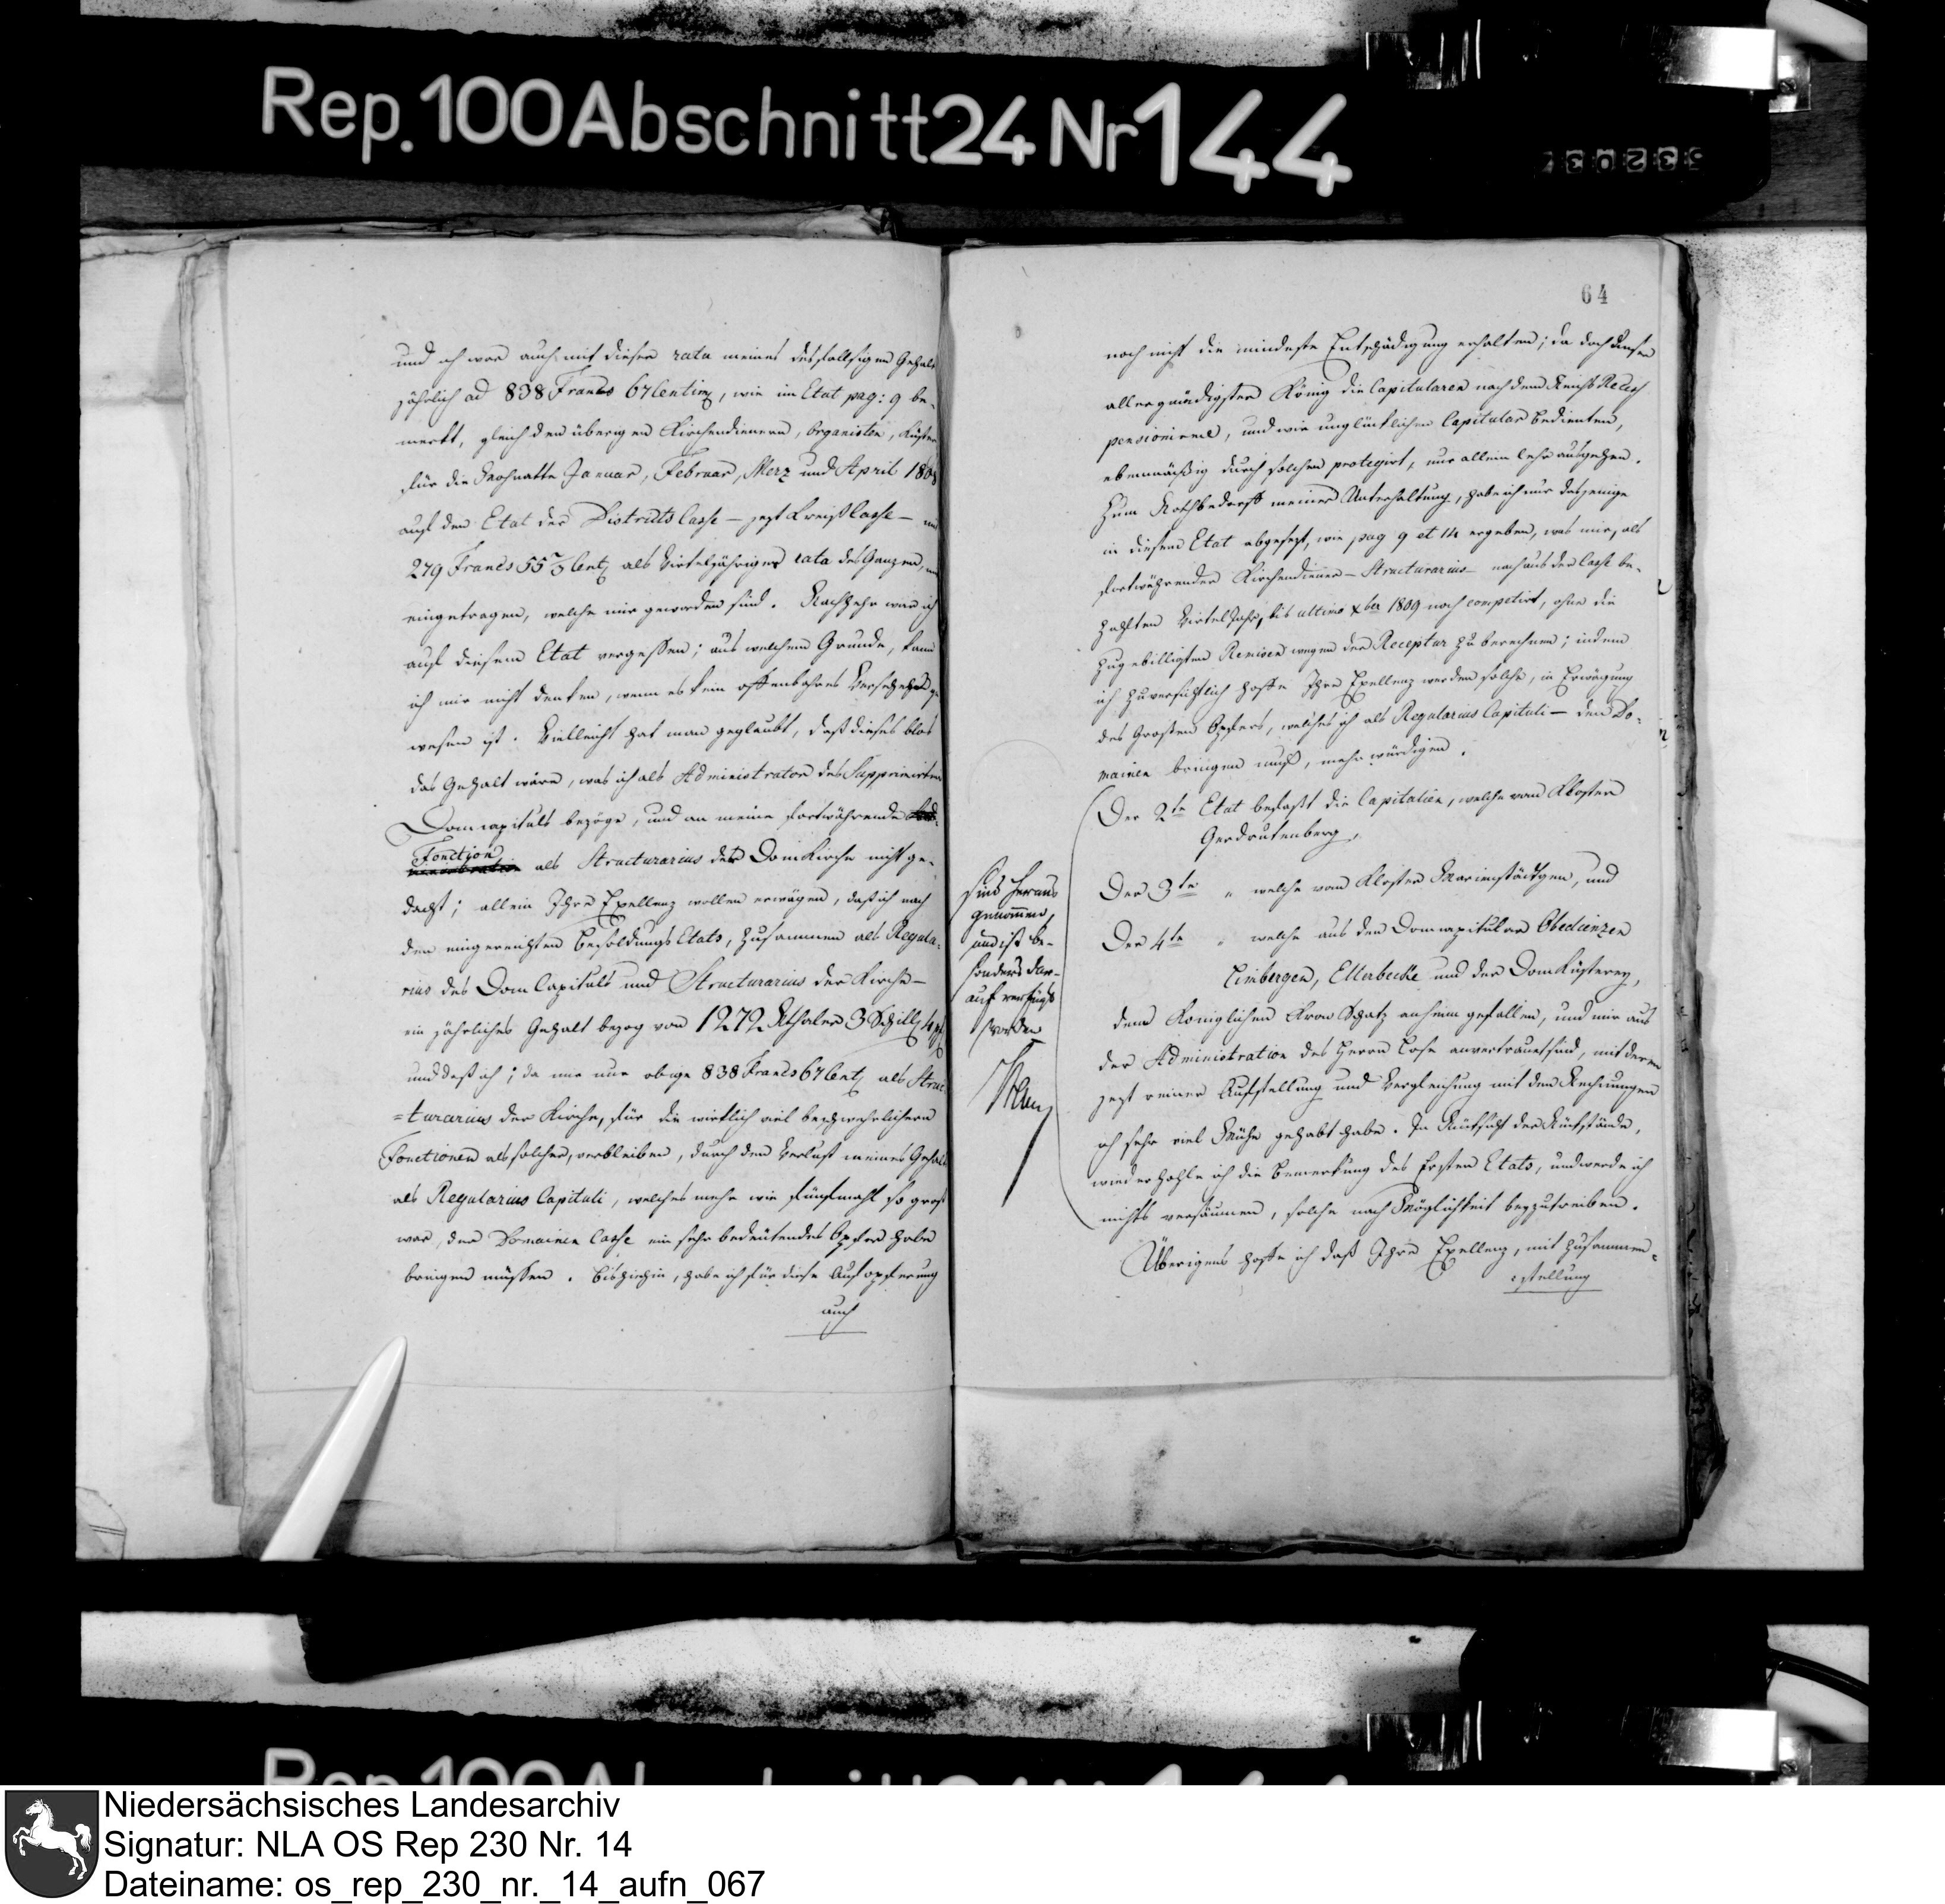 Rep. 100 Abschnitt 24 Nr 144
und ich war auch mit dieser rata meines desfallsigen Gehalts
jährlich ad 838 Francs 67 Centim, wie im Etat pag: 9 be-
merkt, gleich den übrigen Kirchendienern, Organisten, Küster
für die Mohnatte Januar, Februar, Merz und April 1808
auf den Etat der Districts Casse – jezt Kreiß Casse –
279 Francs 55 Cent als Viertelähriger rata des Ganzen,
eingetragen, welche mir geworden sind. Nachhehr war ich
auf diesem Etat vergessen; aus welchem Grunde, kann
ich mir nicht denken, wenn es kein offenbahres Versehen ge-
wesen ist. Vielleicht hat man geglaubt, daß dieses blos
das Gehalt wäre, was ich als Administrator des Supprimirten
Domcapituls bezöge, und an meine fortwährende
Fonction als Structurarius der Dom Kirche nicht ge-
dacht; allein Ihre Exellenz wollen erwägen, daß ich nach
den eingereichten Besoldungs Etats, zusammen als Regula-
rius des Dom Capituls und Structurarius der Kirche –
ein jährliches Gehalt bezog von 1272 Rthaler 3 Schill 4
und daß ich; da mir nur obige 838 Francs 67 Cent als Struc-
=turarius der Kirche, für die wirklich viel beschwehrlichern
Fonctionen als solcher, verbleiben, durch den Verlust meines Gehalts
als Regularius Capituli, welches mehr wie fünfmahl so groß
war, der Domainen Casse ein sehr bedeutendes Opfer habe
bringen müssen. Bishiehin, habe ich für diese Aufopferung
auch
64
noch nicht die mindeste Entschädigung erhalten; da doch unser
allergnädigster König die Capitularen nach dem Reichs Recess
pensionirt, und wir unglücklichen Capitular Bedienten,
ebenmäßig durch solchen protegirt, nur allein lehr ausgehen.
Zum Nothbedarf meiner Unterhaltung, habe ich nur dasjenige
in diesem Etat abgesezt, wie pag 9 et 14 ergeben, was mir, als
fortwährender Kirchendiener – Structurarius – nach aus der Casse be-
zahlten Viertel Jahr, bis ultimo xber 1809 noch competirt, ohne die
zugebilligten Remisen wegen der Receptur zu berechnen; indem
ich zuversichtlich hoffe Ihre Exellenz werden solche, in Erwägung
des Großen Opfers, welches ich als Regularius Capituli – den Do-
mainen bringen muß, mehr würdigen.
Der 2te Etat befaßt die Capitalien, welche vom Kloster
Gerdrutenberg,
Der 3te " welche vom Kloster Marienstädtgen, und
Der 4te " welche aus den Domcapitular Obedienzen
Limbergen, Ellerbecke und der Dom Küsterey,
dem Königlichen Kron Schatz anheim gefallen, und mir aus
der Administration des Herrn Lohse anvertrauet sind, mit deren
jezt reiner Aufstellung und Vergleichung mit den Rechnungen
ich sehr viel Mühe gehabt habe. In Rücksicht der Rückstände,
wiederhohle ich die Bemerkung des Ersten Etats, und werde ich
nichts versäumen, solche nach Möglichkeit beyzutreiben.
Überigens hoffe ich daß Ihre Exellenz, mit Zusammen-
stellung
sind heraus
genommen,
und ist be-
sonders dar-
auf verfügt
worden
Niedersächsisches Landesarchiv
Signatur: NLA OS Rep 230 Nr. 14
Dateiname: os_rep_230_nr._14_aufn_067